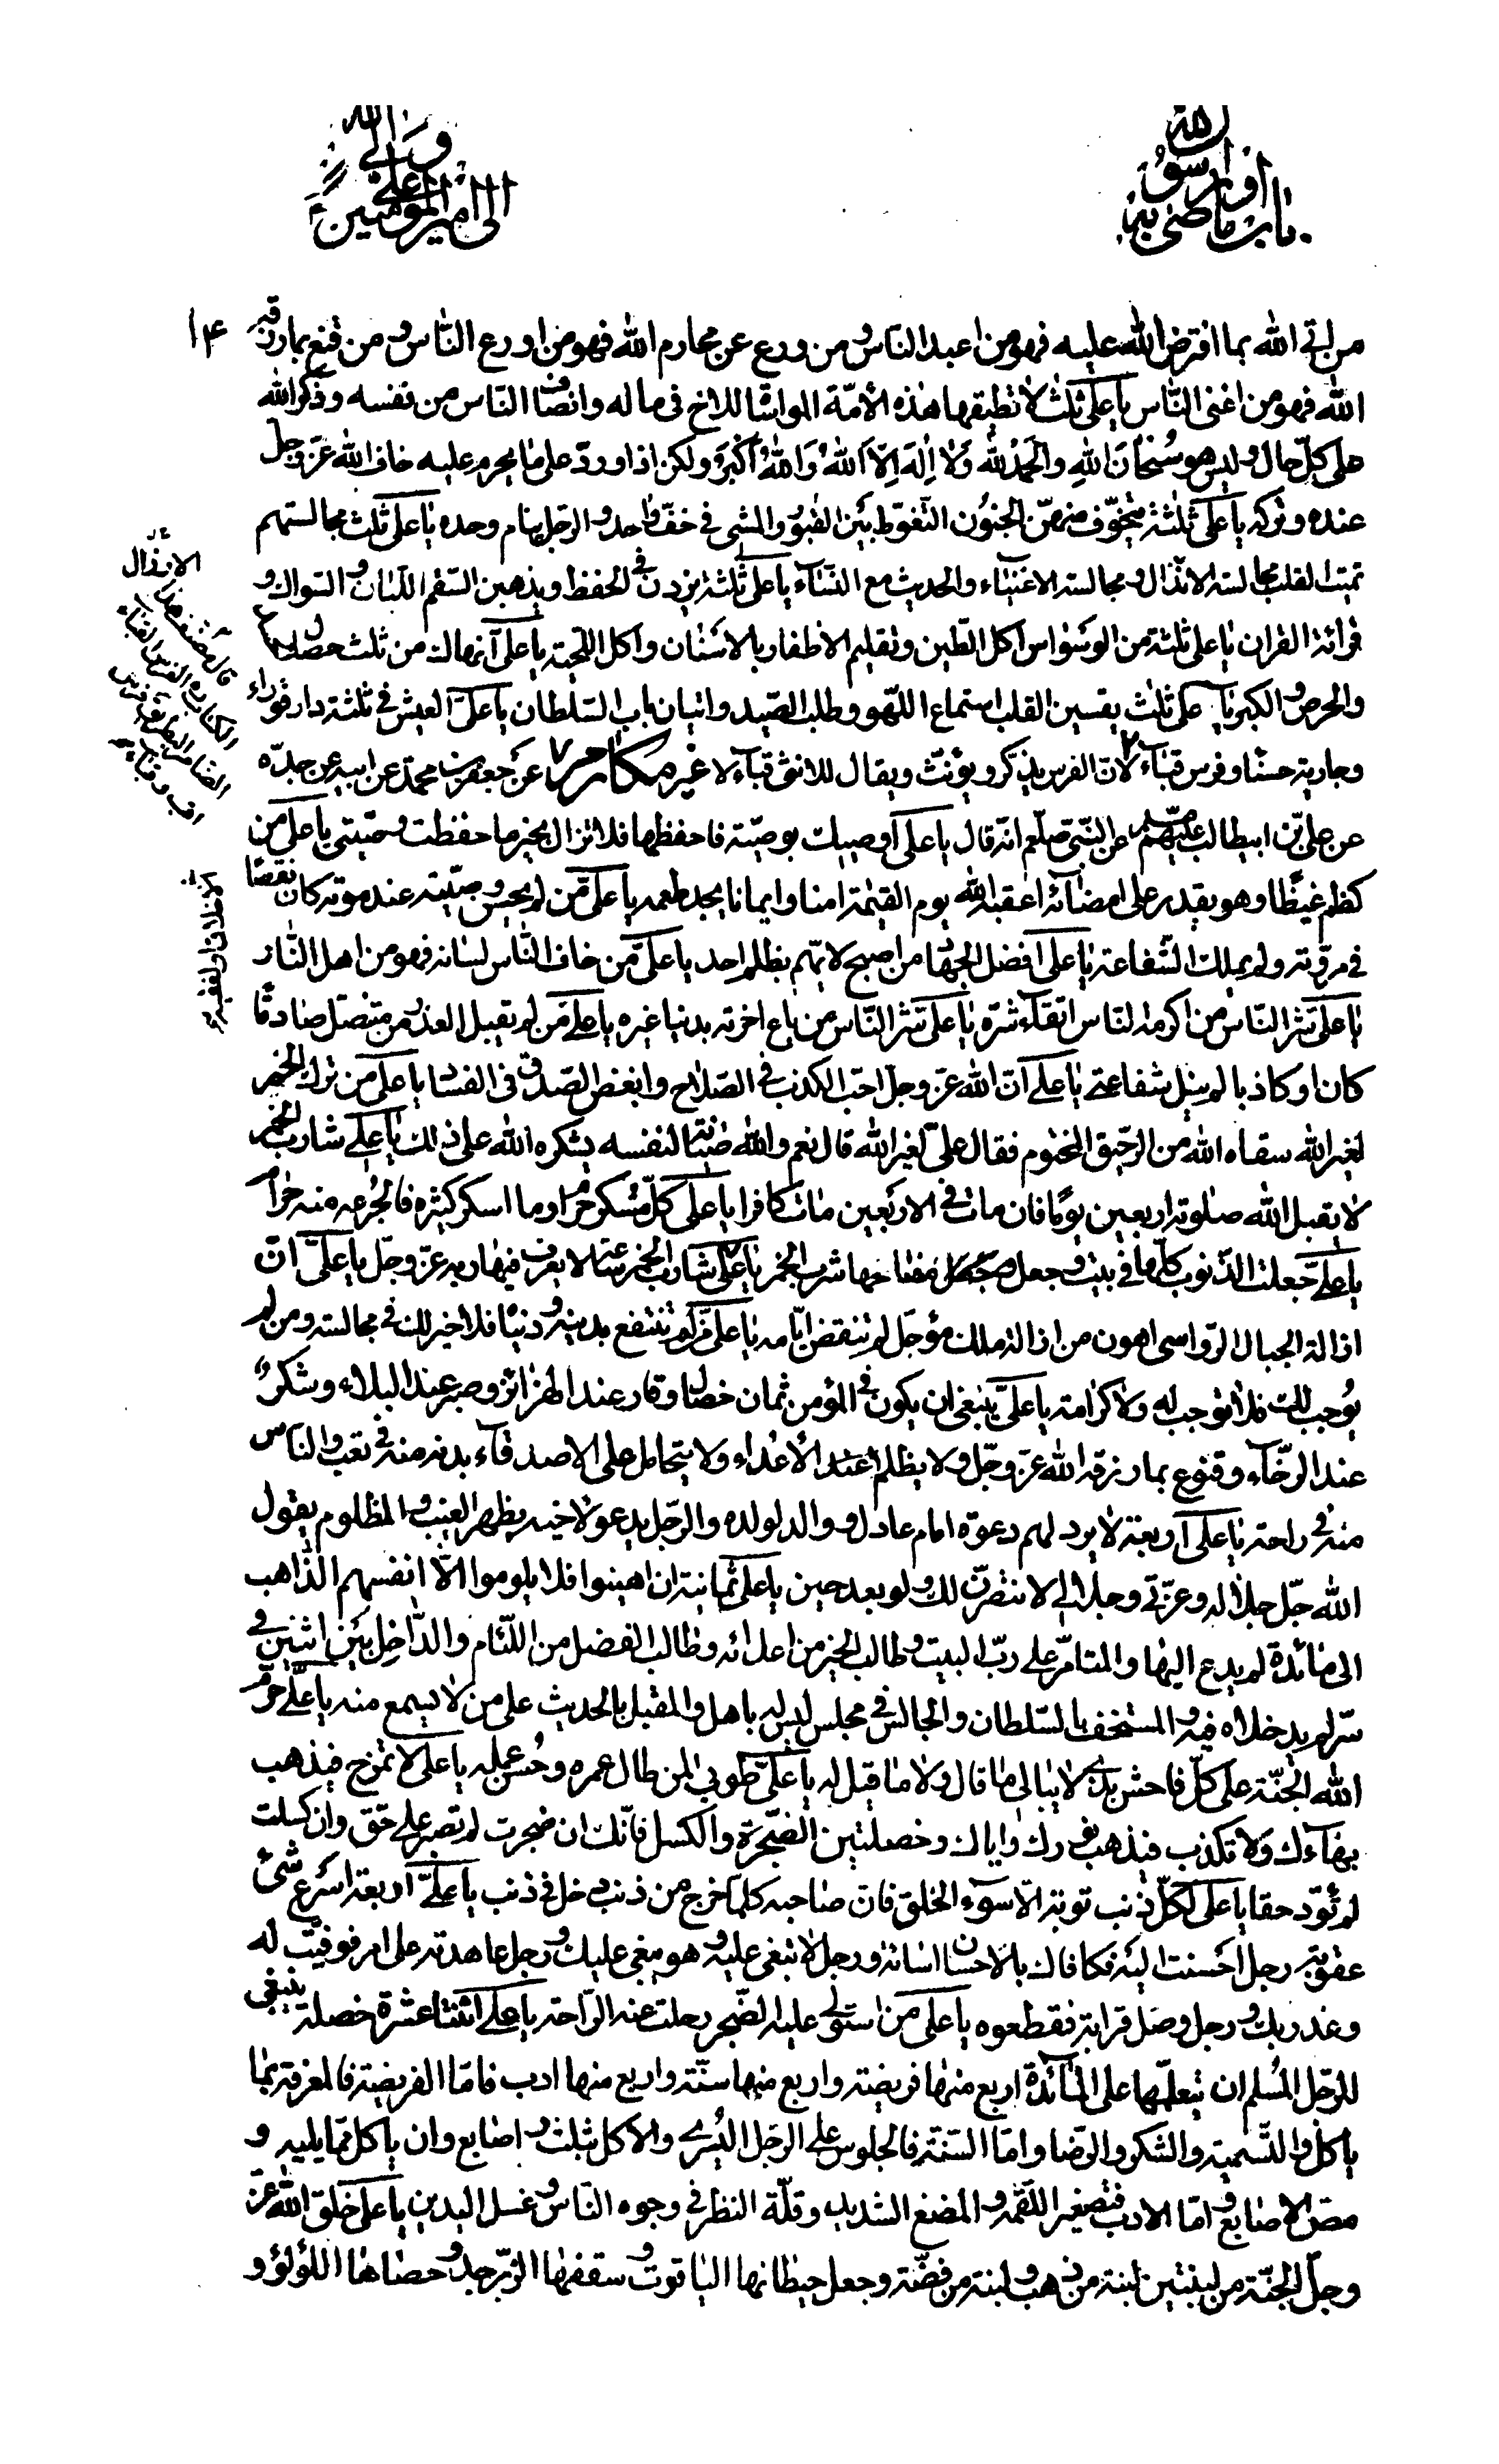 باب ما اوصى به رسول الله
الى امير المؤمنين على ولى الله
١۴
من اتى الله بما افترض الله عليه فهو من اعبد الناس و من ورع عن محارم الله فهو من اورع الناس و من قنع بما رزقه
الله فهو من اغنى الناس يا على ثلث لا تطيقها هذه الأمّة المواساة للاخ فى ماله وانصاف الناس من نفسه وذكر الله
على كلّ حال وليس هو سُبْحانَ اللهِ والحَمْدُ للهِ وَلا اِلٰهَ اِلّا اللهُ وَاللهُ اَكْبَرُ ولكن اذا ورد على ما يحرم عليه خاف الله عزّ وجلّ
عنده وتركه يا على ثلثة يتخوّف منهنّ الجنون التّغوّط بين القبور والمشى فى خفّ واحد والرجل ينام وحده يا على ثلث مجالستهم
تميت القلب مجالسة الانذال ومجالسة الاغنياء والحديث مع النّساء يا على ثلثة يزدن فى الحفظ ويذهبن السّقم اللّبان والسّواك و
قرائة القران يا على ثلثة من الوسواس اكل الطّين وتقليم الاظفار بالاسنان واكل اللّحية يا على انهاك من ثلث خصال الحسد
والحرص والكبر يا على ثلث يقسين القلب استماع اللّهو وطلب الصّيد واتيان باب السّلطان يا علىّ العيش فى ثلثة دار قوراء
وجارية حسناء وفرس قبّاء لانّ الفرس يذكّر ويؤنّث ويقال للانثى قبّاء لا غير مكارم عن جعفر بن محمّد عن ابيه عن جدّه
عن علىّ بن ابيطالب عليهم عن النّبىّ صلعم انّه قال يا على اوصيك بوصيّة فاحفظها فلا تزال بخير ما حفظت وصيّتى يا على من
كظم غيظًا وهو يقدر على امضائه اعقبه الله يوم القيٰمة امنا وايمانا يجد طعمه يا على مَن لم يحسن وصيّته عند موته كان نقصًا
فى مروّته ولم يملك الشّفاعة يا على افضل الجهاد من اصبح لا يهمّ بظلم احد يا على مَن خاف النّاس لسانه فهو من اهل النّار
يا على شرّ النّاس من اكرمه النّاس اتقاء شرّه يا على شرّ النّاس من باع اخرته بدنيا غيره يا على مَن لم يقبل العذر من متنصّل صادقًا
كان او كاذبا لم ينل شفاعتى يا على انّ الله عزّ وجلّ احبّ الكذب فى الصّلاح وابغض الصّدق فى الفساد يا على من ترك الخمر
لغير الله سقاه الله من الرّحيق المختوم فقال علىّ لغير الله قال نعم والله صيانة لنفسه يشكره الله على ذلك يا على شارب الخمر
لا يقبل الله صلوته اربعين يومًا فان مات فى الاربعين مات كافرا يا على كلّ مُسكر حرام وما اسكر كثيره فالجُرعه منه حرام
يا على جعلت الذّنوب كلّها فى بيت وجعل مفتاحها شرب الخمر يا على شارب الخمر ساعة لا يعرف فيها ربه عزّ وجلّ يا علىّ انّ
ازالة الجبال الرّواسى اهون من ازالة ملك مؤجّل لم تنقض ايّامه يا على مَن لم تنتفع بدينه و دنياه فلا خير لك فى مجالسته ومن لم
يُوجب لك فلا توجب له ولا كرامة يا علىّ ينبغى ان يكون فى المؤمن ثمان خصال وقار عند الهزاهز وصبر عند البلاء وشكر
عند الرّخاء وقنوع بما رزقه الله عزّ وجلّ ولا يظلم الأعداء ولا يتحامل على الاصدقاء بدنه منه فى تعب والناس
منه فى راحة يا على اربعة لا يرد لهم دعوة امام عادل ووالد لولده والرّجل يدعو لاخيه بظهر الغيب والمظلوم يقول
الله جلّ جلاله وعزّتى وجلالى لانتصرنّ لك ولو بعد حين يا على ثمانية ان اهينوا فلا يلوموا الّا انفسهم الذّاهب
الى مائدة لم يدع اليها والمتأمّر على ربّ البيت وطالب الخير من اعدائه وطالب الفضل من اللّئام والدّاخِل بين اثنين فى
سرّ لم يدخلاه فيه والمستخف بالسّلطان والجالس فى مجلس ليس له باهل والمقبل بالحديث على من لا يسمع منه يا علىّ حرّم
الله الجنّة على كلّ فاحش بذى لا يبالى ما قال ولا ما قيل له يا علىّ طوبى لمن طال عمره وحُسن عمله يا على لا تمزح فيذهب
بهاءك ولا تكذب فيذهب نورك واياك وخصلتين الضّجرة والكسل فانّك ان ضجرت لم تصبر على حقّ وان كسلت
لم تؤد حقا يا على لكلّ ذنب توبة الّا سوء الخلق فانّ صاحبه كلّما خرج من ذنب دخل فى ذنب يا علىّ اربعة اسرع شئ
عقوبة رجل احسنت اليه فكافاك بالاحسان اسائة ورجل لا تبغى عليه وهو يبغى عليك ورجل عاهدته على امر فوفيت له
وغدر بك ورجل وصل قرابة فقطعوه يا على من استولى عليه الضّجر رحلت عنه الرّاحة يا على اثنتا عشرة خصلة ينبغى
للرّجل المُسلم ان يتعلّمها على المائدة اربع منها فريضة واربع منها سنّة واربع منها ادب فامّا الفريضة فالمعرفة بما
يأكل والتّسمية والشكر والرّضا وامّا السّنّة فالجلوس على الرجل اليُسرى والاكل بثلث اصابع وان ياكل ممّا يليه و
مصّ الاصابع وامّا الادب فتصغير اللّقمة و المضغ الشديد وقلّة النظر فى وجوه النّاس و غسل اليدين يا على خلق الله عزّ
وجلّ الجنّة من لبنتين لبنة من ذهب ولبنة من فضّة وجعل حيطانها الياقوت وسقفها الزّبرجد وحصاها اللّؤلؤ و